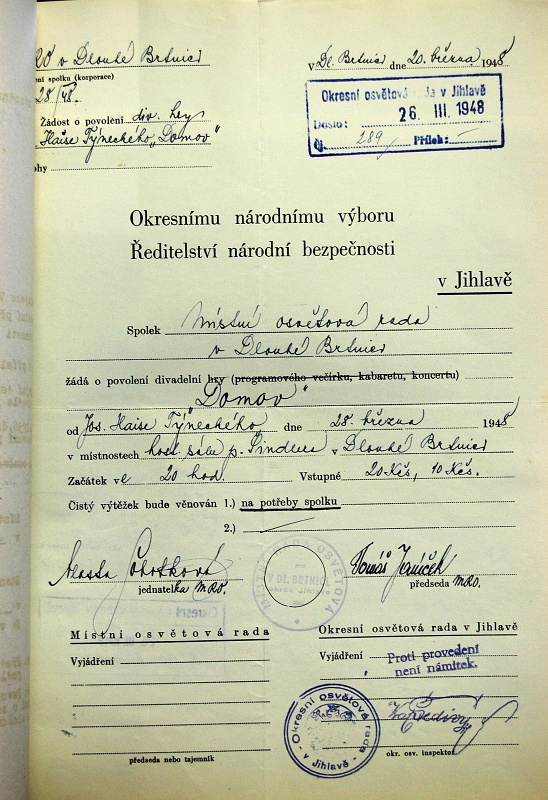 v Dlouhé Brtnici
v Dl. Brtnici dne 20. března 1948
ení spolku (korporace)
28/48.
Žádost o povolení div. hry
Haise Týneckého „Domov“
ohy
Okresní osvětová rada v Jihlavě
Došlo: 26. III. 1948
Čj. 289 Příloh: –
Okresnímu národnímu výboru
Ředitelství národní bezpečnosti
v Jihlavě
Spolek Místní osvětová rada
v Dlouhé Brtnici
žádá o povolení divadelní hry (programového večírku, kabaretu, koncertu)
„Domov“
od Jos. Haise Týneckého dne 28. března 1948
v místnostech host. sálu p. Šindlera v Dlouhé Brtnici
Začátek ve 20 hod. Vstupné 20 Kčs, 10 Kčs.
Čistý výtěžek bude věnován 1.) na potřeby spolku
2.)
Vlasta
jednatelka MRO.
MÍSTNÍ RADA OSVĚTOVÁ
V DL. BRTNICI
okres Jihlava
Tomáš Janíček
předseda MRO.
Místní osvětová rada
Vyjádření
předseda nebo tajemník
Okresní osvětová rada v Jihlavě
Vyjádření Proti provedení
není námitek.
Okresní osvětová rada
v Jihlavě
okr. osv. inspektor